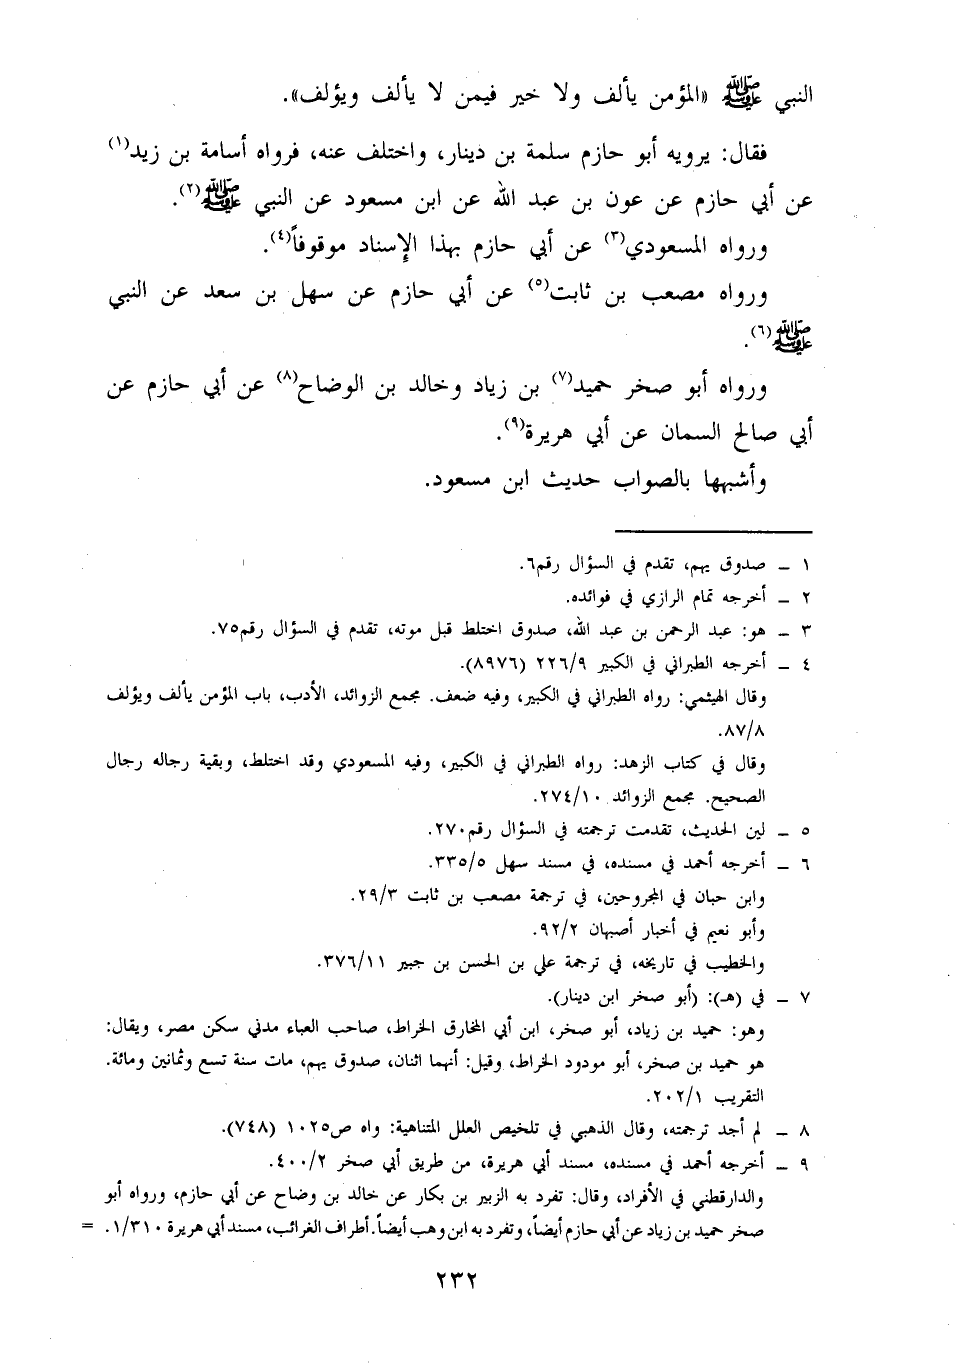 النبي ﷺ «المؤمن يألف ولا خير فيمن لا يألف ويؤلف».
فقال: يرويه أبو حازم سلمة بن دينار، واختلف عنه، فرواه أسامة بن زيد(١)
عن أبي حازم عن عون بن عبد الله عن ابن مسعود عن النبي ﷺ(٢).
ورواه المسعودي(٣) عن أبي حازم بهذا الإسناد موقوفاً(٤).
ورواه مصعب بن ثابت(٥) عن أبي حازم عن سهل بن سعد عن النبي
ﷺ(٦).
ورواه أبو صخر حميد(٧) بن زياد وخالد بن الوضاح(٨) عن أبي حازم عن
أبي صالح السمان عن أبي هريرة(٩).
وأشبهها بالصواب حديث ابن مسعود.
١ ـ صدوق يهم، تقدم في السؤال رقم٦.
٢ ـ أخرجه تمام الرازي في فوائده.
٣ ـ هو: عبد الرحمن بن عبد الله، صدوق اختلط قبل موته، تقدم في السؤال رقم٧٥.
٤ ـ أخرجه الطبراني في الكبير ٢٢٦/٩ (٨٩٧٦).
وقال الهيثمي: رواه الطبراني في الكبير، وفيه ضعف. مجمع الزوائد، الأدب، باب المؤمن يألف ويؤلف
٨٧/٨.
وقال في كتاب الزهد: رواه الطبراني في الكبير، وفيه المسعودي وقد اختلط، وبقية رجاله رجال
الصحيح. مجمع الزوائد ٢٧٤/١٠.
٥ ـ لين الحديث، تقدمت ترجمته في السؤال رقم٢٧٠.
٦ ـ أخرجه أحمد في مسنده، في مسند سهل ٣٣٥/٥.
وابن حبان في المجروحين، في ترجمة مصعب بن ثابت ٢٩/٣.
وأبو نعيم في أخبار أصبهان ٩٢/٢.
والخطيب في تاريخه، في ترجمة علي بن الحسن بن جبير ٣٧٦/١١.
٧ ـ في (هـ): (أبو صخر ابن دينار).
وهو: حميد بن زياد، أبو صخر، ابن أبي المخارق الخراط، صاحب العباء مدني سكن مصر، ويقال:
هو حميد بن صخر، أبو مودود الخراط، وقيل: أنهما اثنان، صدوق يهم، مات سنة تسع وثمانين ومائة.
التقريب ٢٠٢/١.
٨ ـ لم أجد ترجمته، وقال الذهبي في تلخيص العلل المتناهية: واه ص١٠٢٥ (٧٤٨).
٩ ـ أخرجه أحمد في مسنده، مسند أبي هريرة، من طريق أبي صخر ٤٠٠/٢.
والدارقطني في الأفراد، وقال: تفرد به الزبير بن بكار عن خالد بن وضاح عن أبي حازم، ورواه أبو
صخر حميد بن زياد عن أبي حازم أيضاً، وتفرد به ابن وهب أيضاً. أطراف الغرائب، مسند أبي هريرة ١/٣١٠. =
٢٣٢